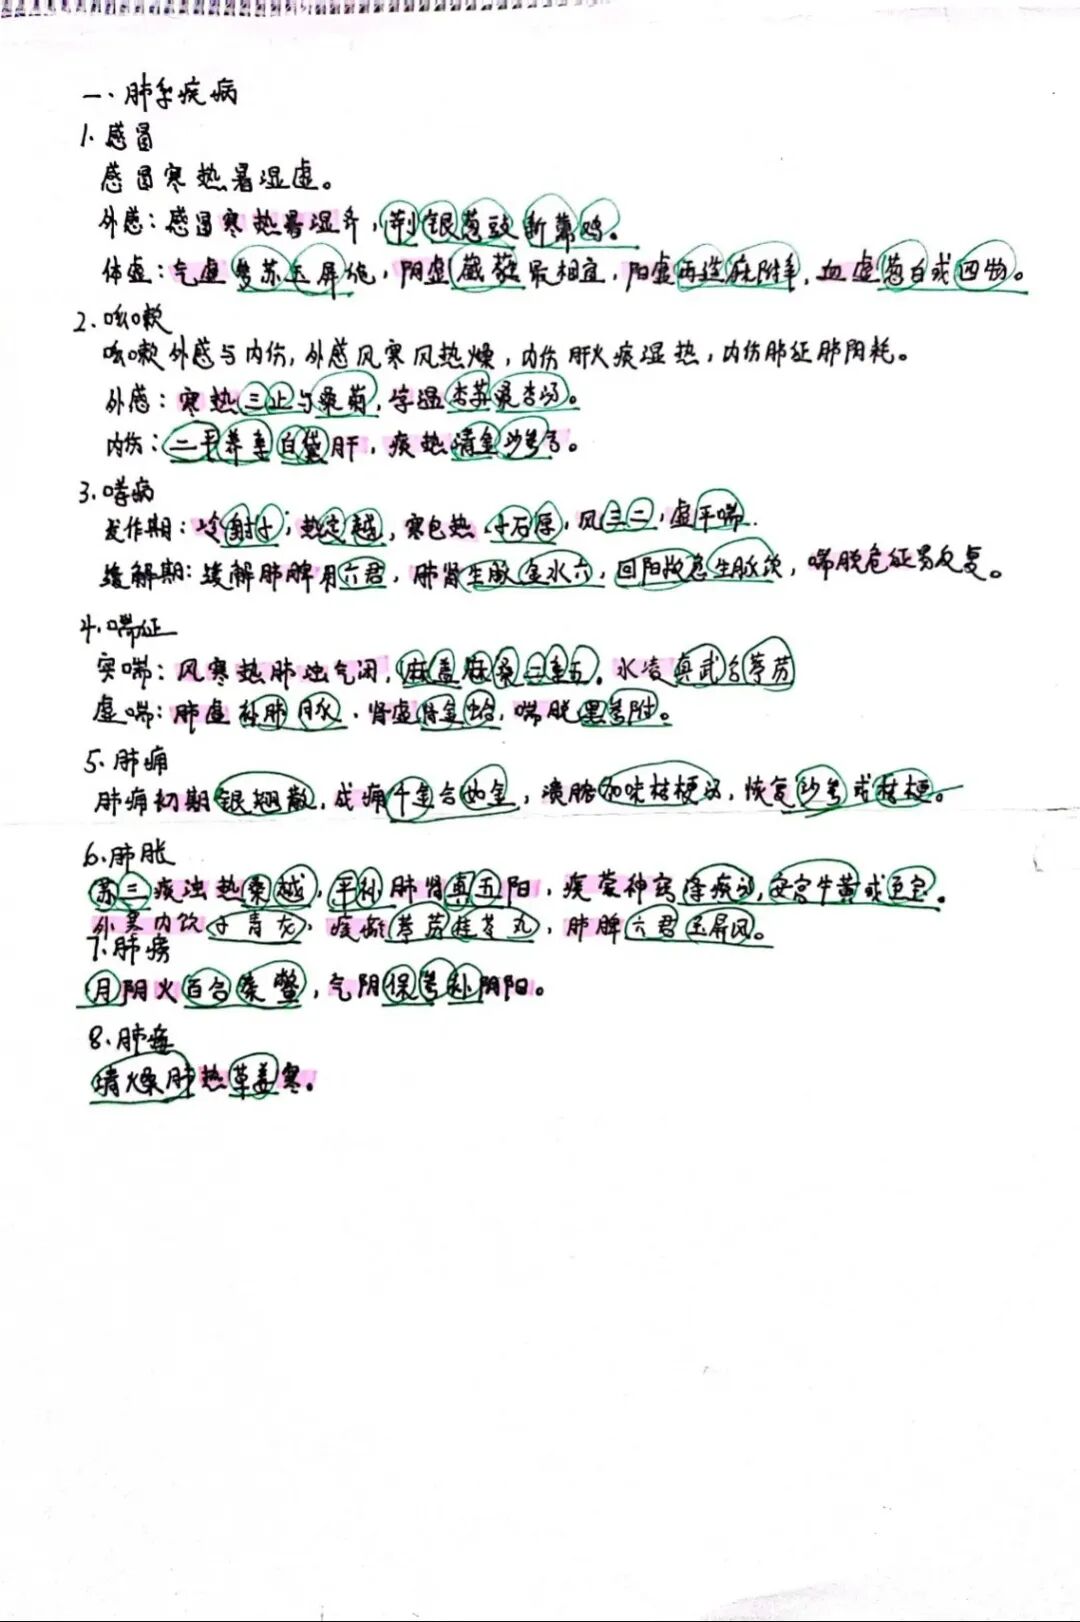 一、肺系疾病
1.感冒
感冒寒热暑湿虚。
外感：感冒寒热暑湿齐，荆银葱豉新薷鸡。
体虚：气虚参苏玉屏他，阴虚葳蕤最相宜，阳虚再造麻附辛，血虚葱白或四物。
2.咳嗽
咳嗽外感与内伤，外感风寒风热燥，内伤肝火痰湿热，内伤肺征肺阴耗。
外感：寒热三止与桑菊，杏苏桑杏汤。
内伤：二平养亲白黛肝，痰热清金沙参
3.哮病
发作期：冷射小，热定越，寒包热小石厚，风三二，虚平喘.
缓解期：缓解肺脾用六君，肺肾生脉金水六，回阳救急生脉饮，喘脱危征易反复。
4.喘证
实喘：风寒热肺浊气闭，麻盖麻桑二三五，水凌真武合葶苈
虚喘：肺虚补肺脉，肾虚肾金蛤，喘脱黑参附。
5.肺痈
肺痈初期银翘散，成痈千金合如金，溃脓加味桔梗汤，恢复沙参或桔梗。
6.肺胀
苏三痰浊热桑越，平补肺肾真五阳，痰蒙神窍涤痰汤，安宫牛黄或至宝.
外寒内饮小青龙，痰瘀葶苈桂苓丸，肺脾六君玉屏风。
7.肺痨
月阴火百合秦鳖，气阴保参补阴阳。
8.肺痿
清燥肺热草姜寒。